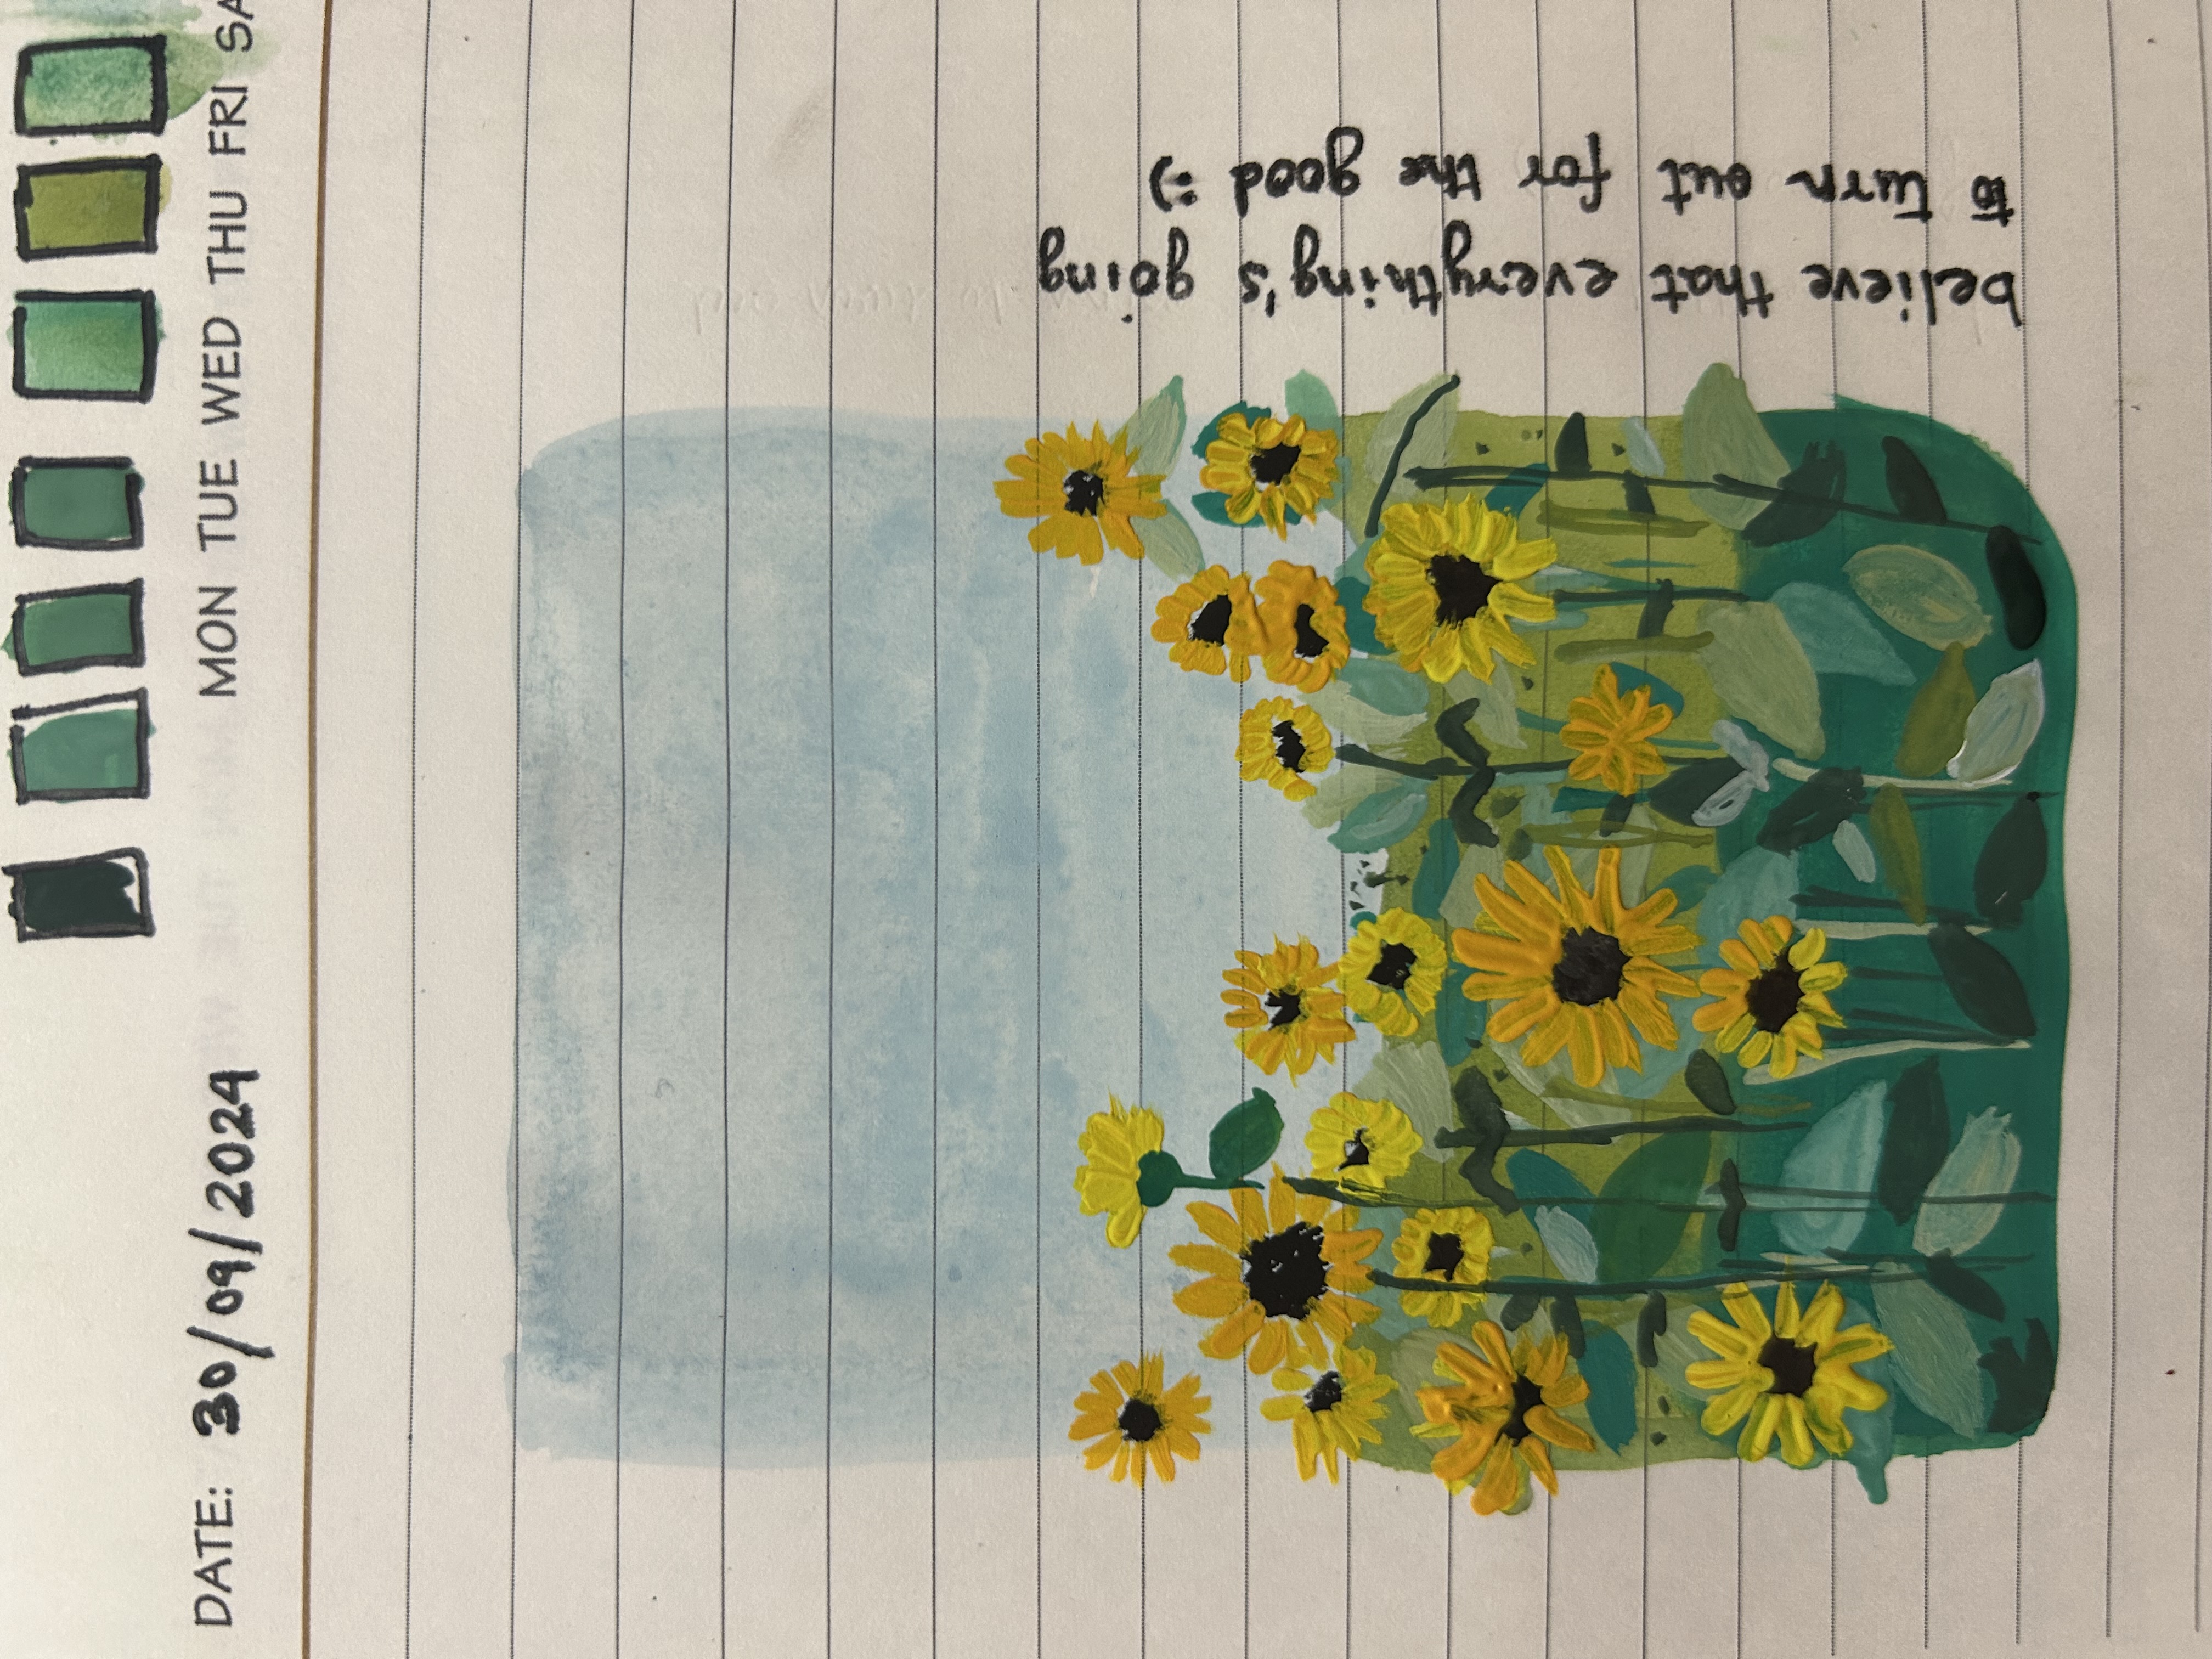 DATE: 30/09/2024
MON TUE WED THU FRI SA
believe that everything's going
to turn out for the good :)